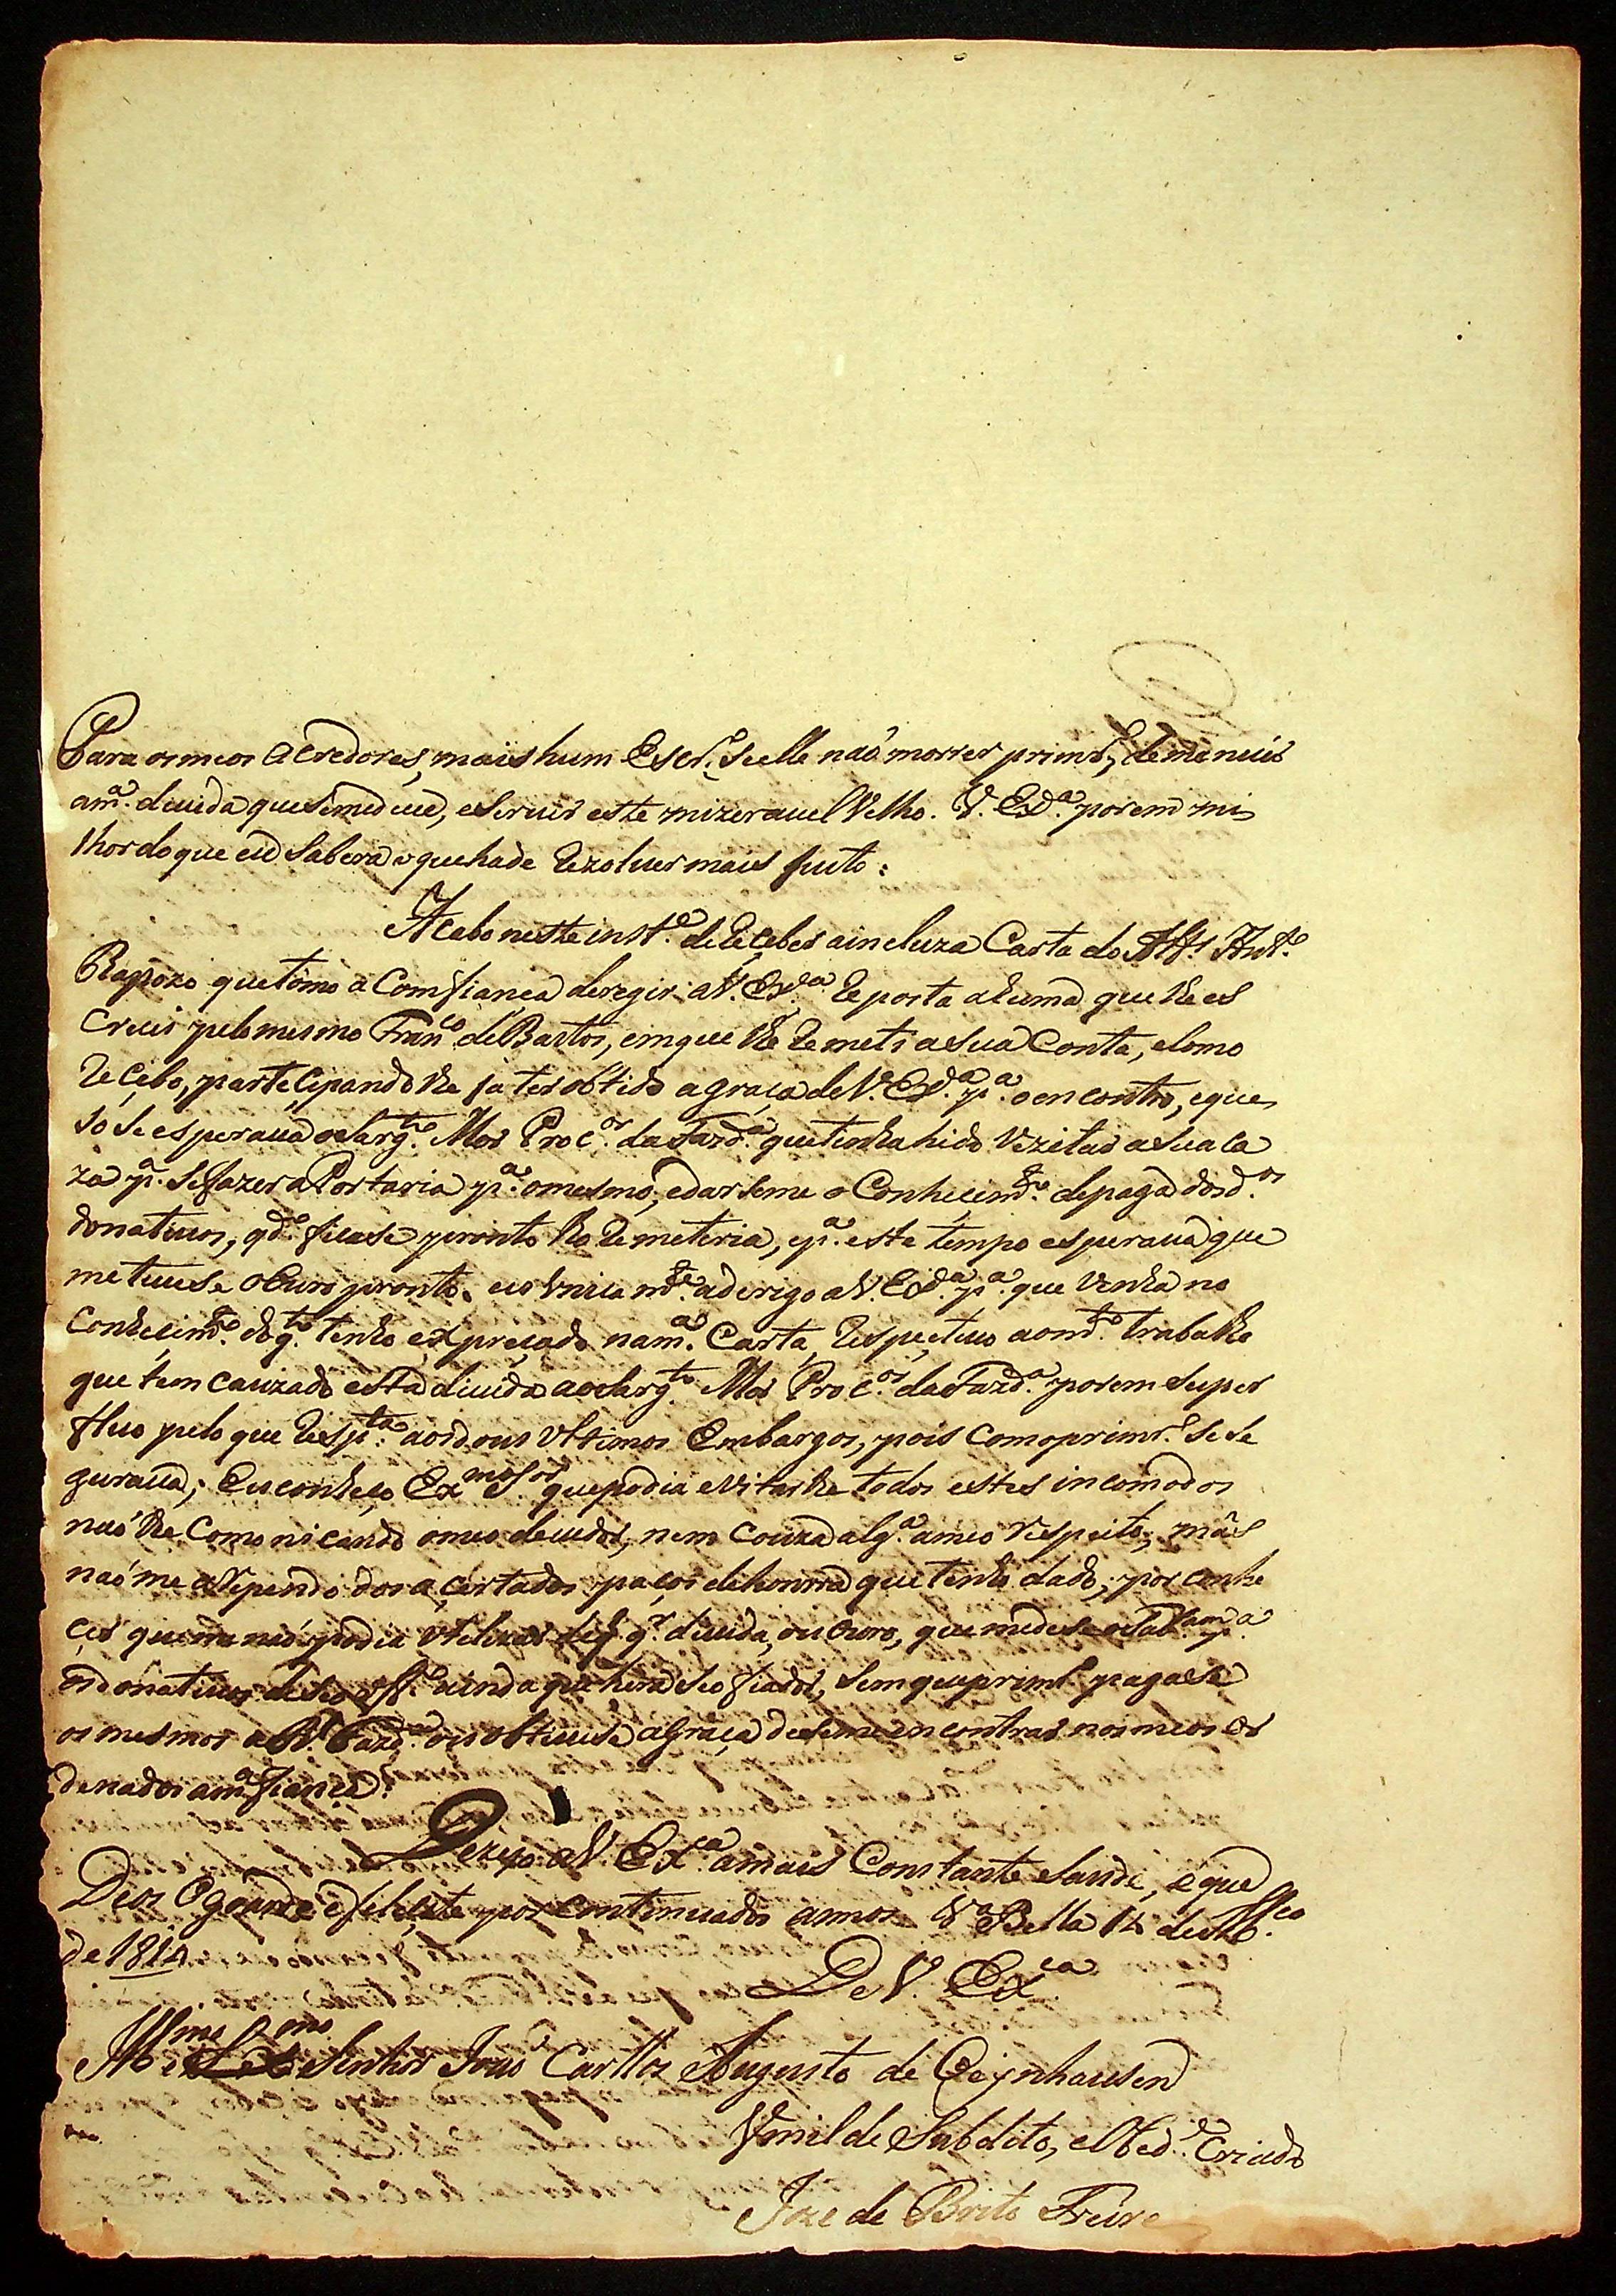 Para os meos Acredores, mais hum Escr.º se elle naõ morrer primr.º, de me nuir
a m.ª divida que se me deve, e servir este mizeravel Velho. V. Ex.ª porem mi
lhor do que eu Saberá o que hade Rezolver mais justo:
Acabo neste inst.e de Receber a incluza Carta do Alf.s Ant.º
Rapozo que tomo a Comfiança deregir a V. Ex.ª Reposta a huma que lhe es
crevi pelo mesmo Fran.co de Bastos, em que lhe Remeti a sua Conta, e Como
Recebo, partecipando lhe ja ter obtido a graça de V. Ex.ª p.ª o encontro, e que
So se esperava o Sarg.to Mor Proc.or da Fazd.ª que tinha hido Vezitar a sua ca
za p.ª se fazer a Portaria p.ª o mesmo, e dar seme o Conhecim.to de paga dos d.os
donativos, q.do ficase pronto lho Remeteria, e p.ª este tempo esperava que
me tivese o Ouro pronto. eu unicam.te a derigo a V. Ex.ª p.ª que Venha no
Conhecim.to do q.to tenho expreçado na m.ª Carta, Respectivo ao m.to trabalho
que tem cauzado esta divida ao Sarg.to Mor Proc.or da Fazd.ª porem super
fluo pelo que Resp.ta aos dous Ultimos Embargos, pois com o primr.º se se
gurava; Eu conheço Ex.mo S.or que podia evitar lhe todos estes incomodos
naõ lhe Comonicando o meo devedor, nem couza alg.ª a meo Respeito, mâs
naõ me aRependo dos açertados paços de honrra que tenho dado, por conhe
cer que naõ podia Utelizar divida, ou Ouro, que me dese
os donativos de seo Off.º ainda que hera seo fiador, sem que primr.º pagase
os mesmos a R.l Fazd.ª ou obtivese a graça de se me encontrar nos meos or
denados a m.ª fiança.
Dezejo a V. Ex.ª a mais Constante saude, e que
Deos O guarde e felecite por continuados annos V.ª Bella 12 de
de 1814
De V. Ex.ca
Ill.mo e Ex.mo Senhor Joaõ Carllos Augusto de Oeynhausen
Vmilde Subdito, e Obed.e Criado
Joze de Brito Freire